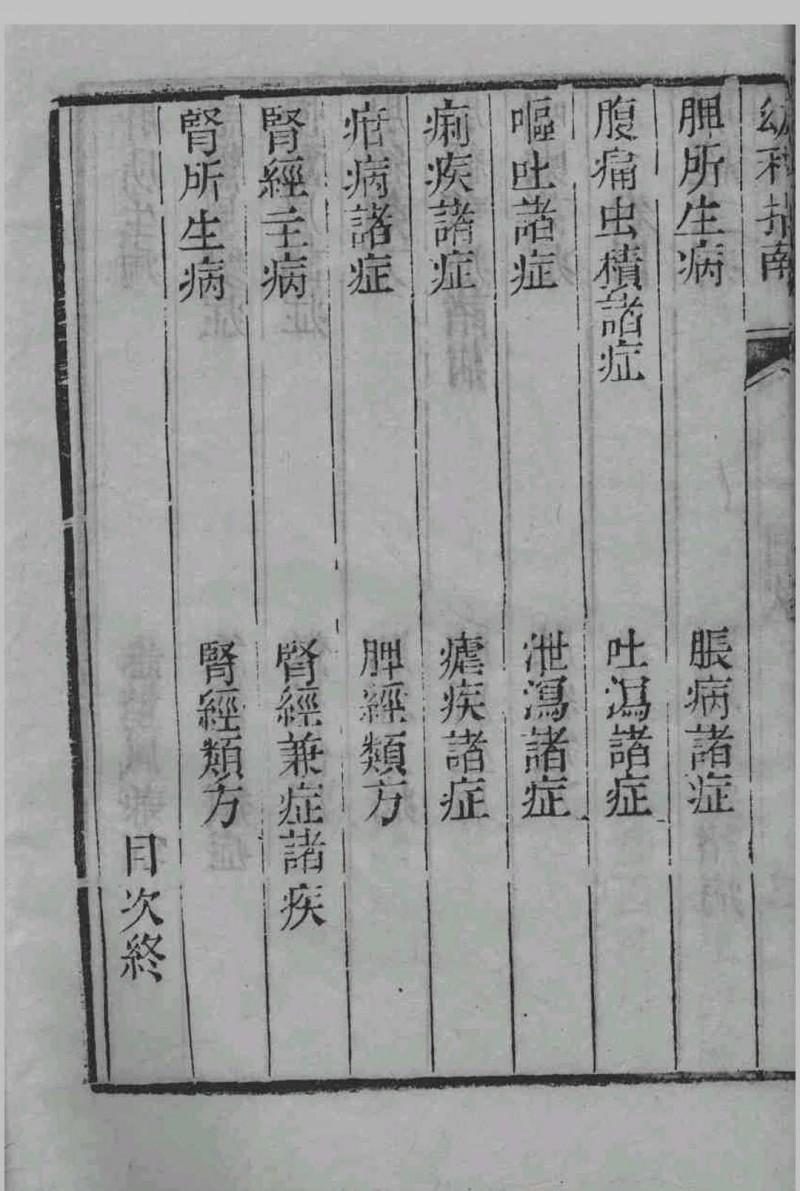 幼科指南
脾所生病 脹病諸症
腹痛虫積諸症 吐瀉諸症
嘔吐諸症 泄瀉諸症
痢疾諸症 瘧疾諸症
疳病諸症 脾經類方
腎經主病 腎經兼症諸疾
腎所生病 腎經類方
目次終